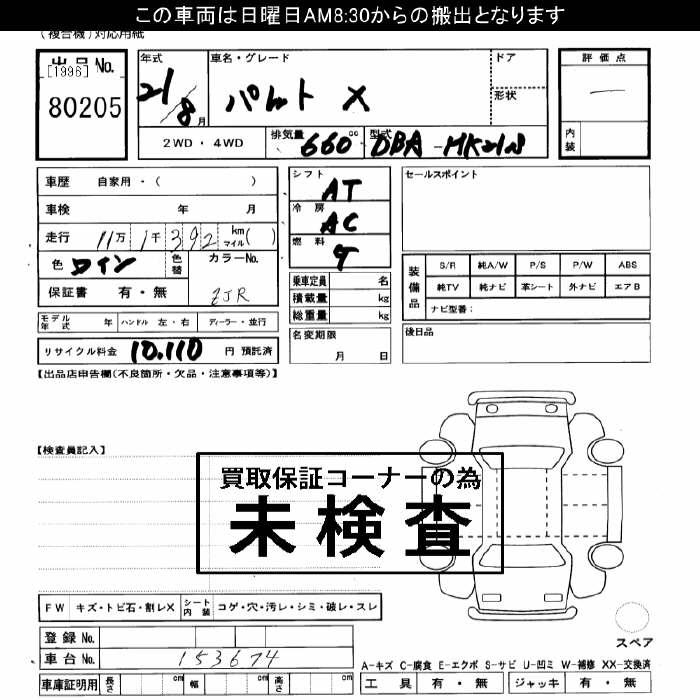 この車両は日曜日AM8:30からの搬出となります
(複合機)対応用紙
出品No.
[1996]
80205
年式
21/8月
車名・グレード
パレット X
ドア
形状
評価点
—
内装
2WD・4WD
排気量
660cc
型式
DBA-MK21S
車歴 自家用・( )
車検 年 月
走行 11万1千392 km マイル( )
色 ワイン
色替
カラーNo.
ZJR
保証書 有・無
シフト
AT
冷房
AC
燃料
G
乗車定員 名
積載量 kg
総重量 kg
名変期限
月 日
セールスポイント
装備品
S/R 純A/W P/S P/W ABS
純TV 純ナビ 革シート 外ナビ エアB
ナビ型番：
後日品
モデル年式 年 ハンドル 左・右 ディーラー・並行
リサイクル料金 10,110 円 預託済
【出品店申告欄(不良箇所・欠品・注意事項等)】
【検査員記入】
買取保証コーナーの為
未検査
FW キズ・トビ石・割レX シート内装 コゲ・穴・汚レ・シミ・破レ・スレ
登録No.
車台No. 153674
車庫証明用 長さ cm 幅 cm 高さ cm
スペア
A-キズ C-腐食 E-エクボ S-サビ U-凹ミ W-補修 XX-交換済
工具 有・無 ジャッキ 有・無